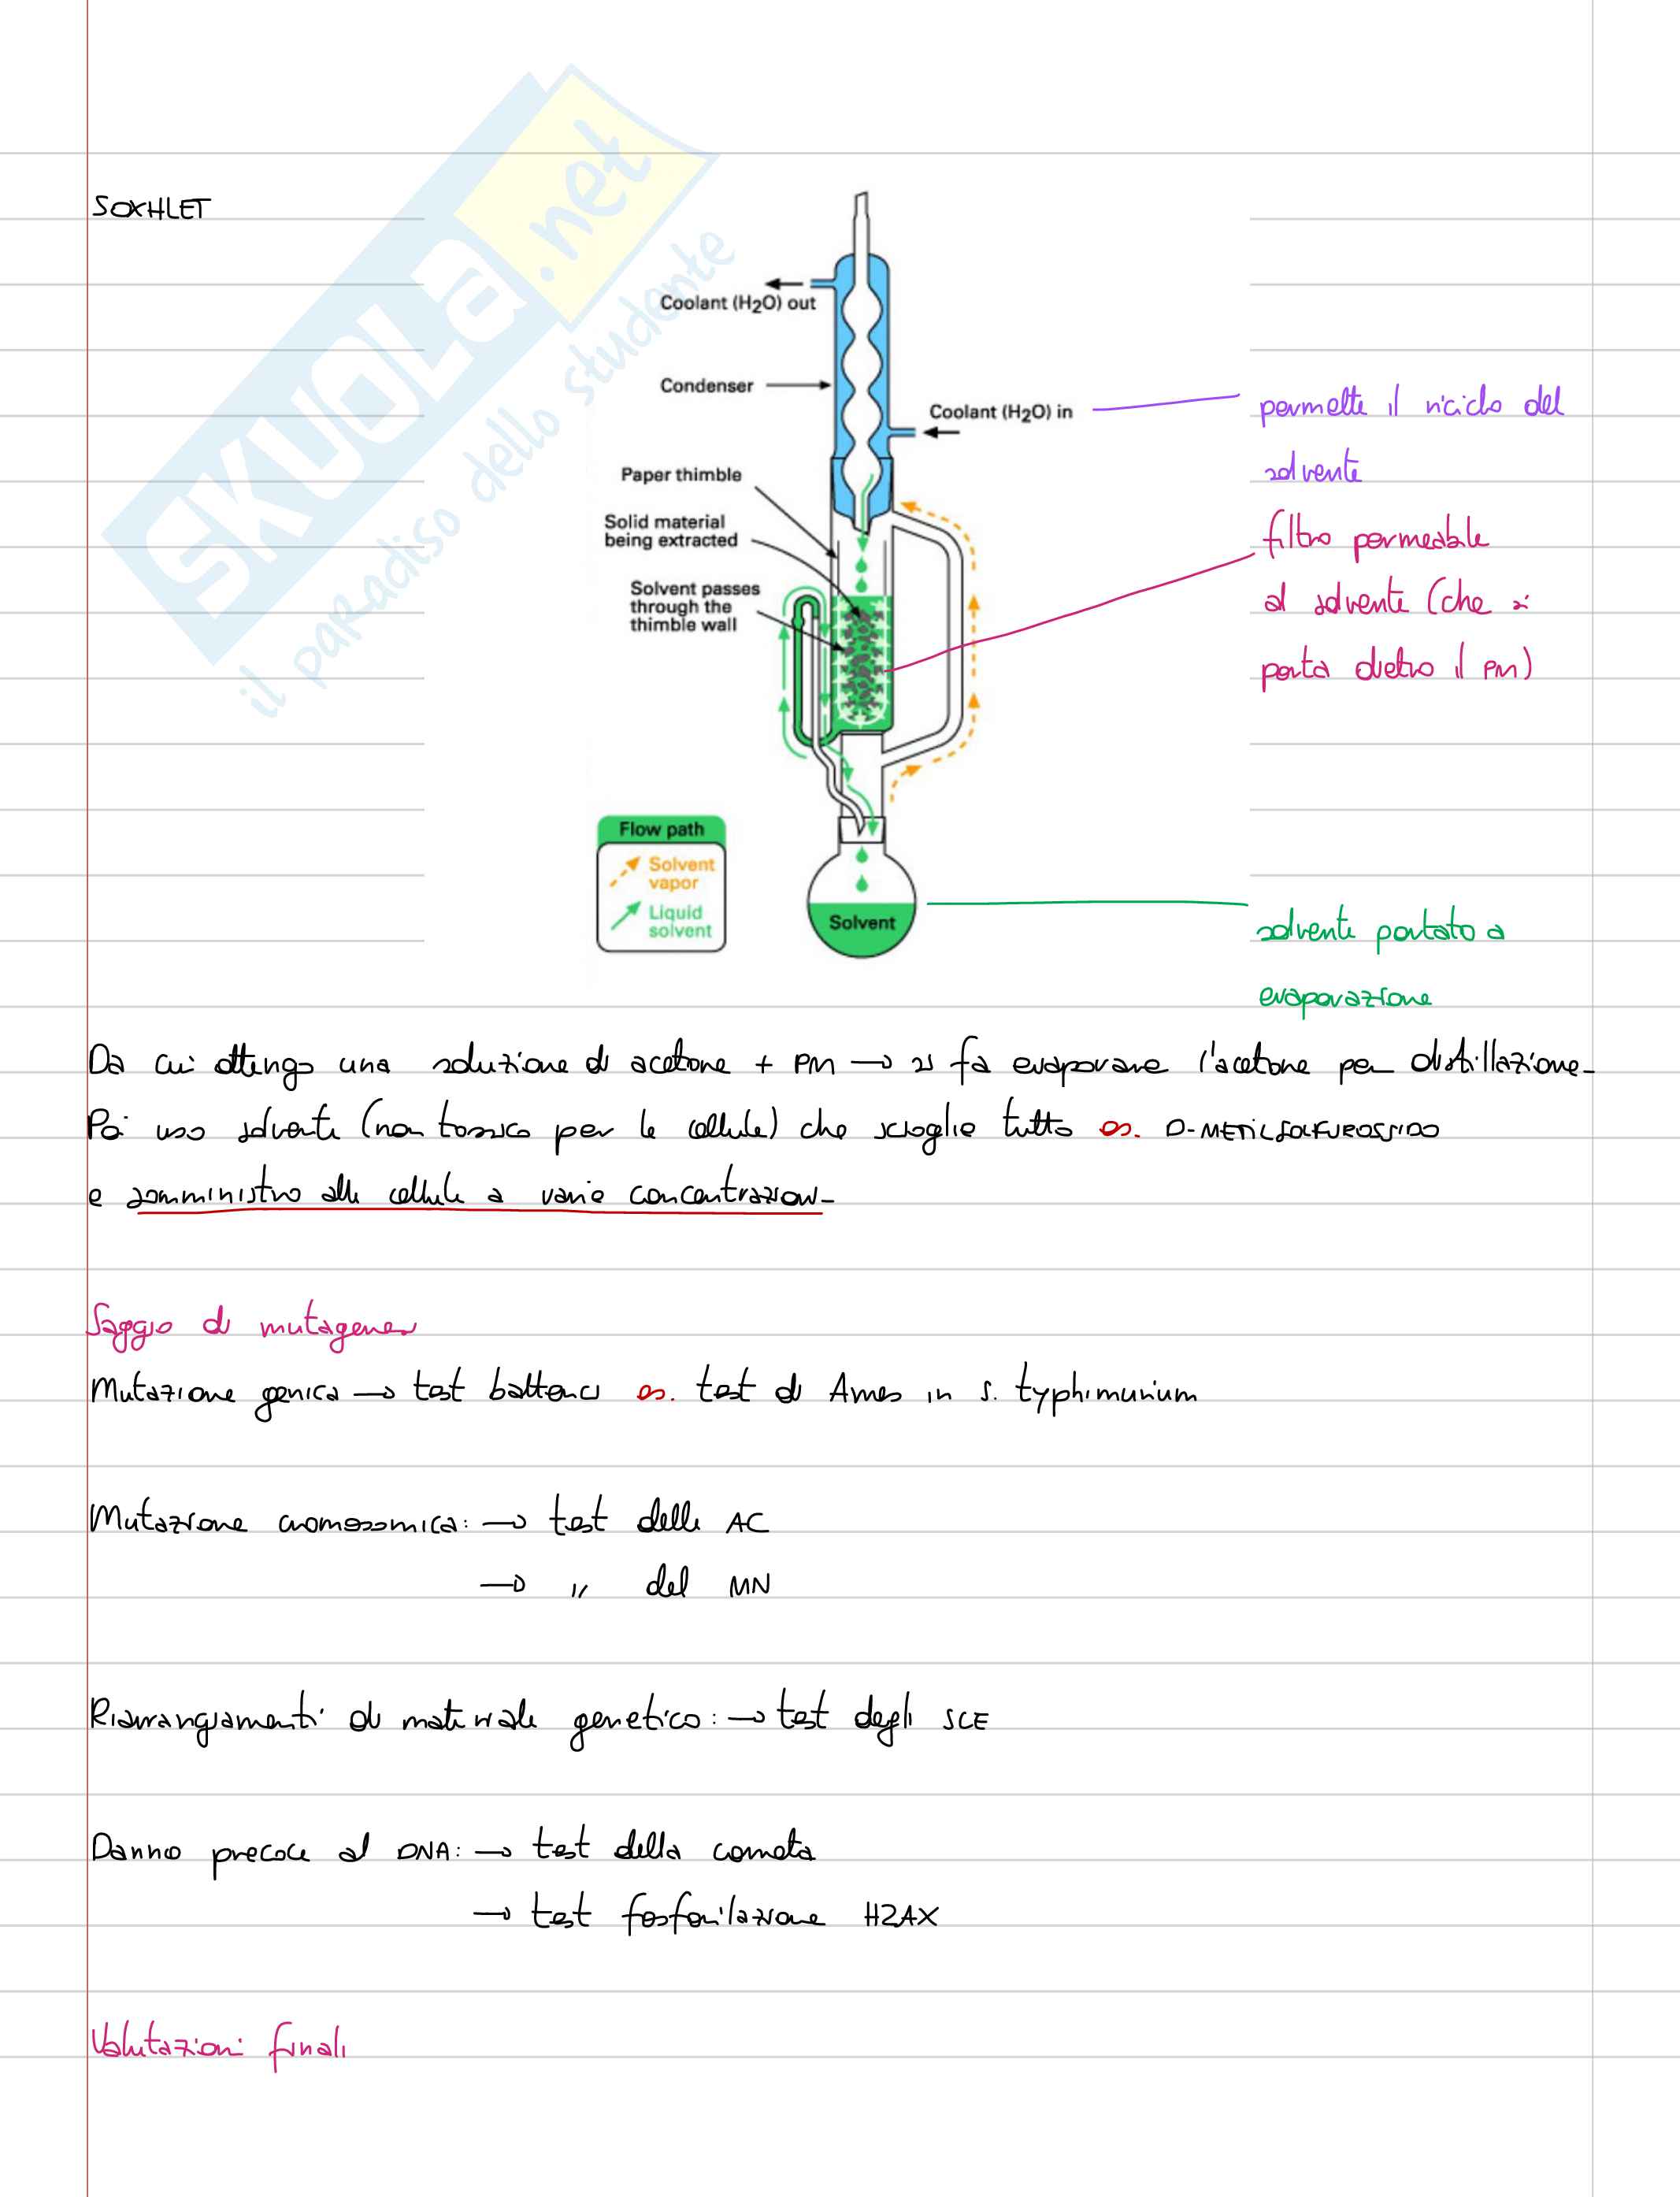 SKUOLA.net
il paradiso dello studente
SOXHLET
Coolant (H2O) out
Condenser
Coolant (H2O) in
permette il riciclo del
solvente
Paper thimble
Solid material
being extracted
filtro permeabile
al solvente (che si
porta dietro il PM)
Solvent passes
through the
thimble wall
Flow path
Solvent
vapor
Liquid
solvent
Solvent
solvente portato a
evaporazione
Da cui ottengo una soluzione di acetone + PM → si fa evaporare l'acetone per distillazione.
Poi uso solvente (non tossico per le cellule) che scioglie tutto es. D-METILSOLFUROSSIDO
e somministro alle cellule a varie concentrazioni.
Saggio di mutagenesi
Mutazione genica → test batterici es. test di Ames in S. typhimurium
Mutazione cromosomica: → test delle AC
→ " del MN
Riarrangiamenti di materiale genetico: → test degli SCE
Danno precoce al DNA: → test della cometa
→ test fosforilazione H2AX
Valutazioni finali